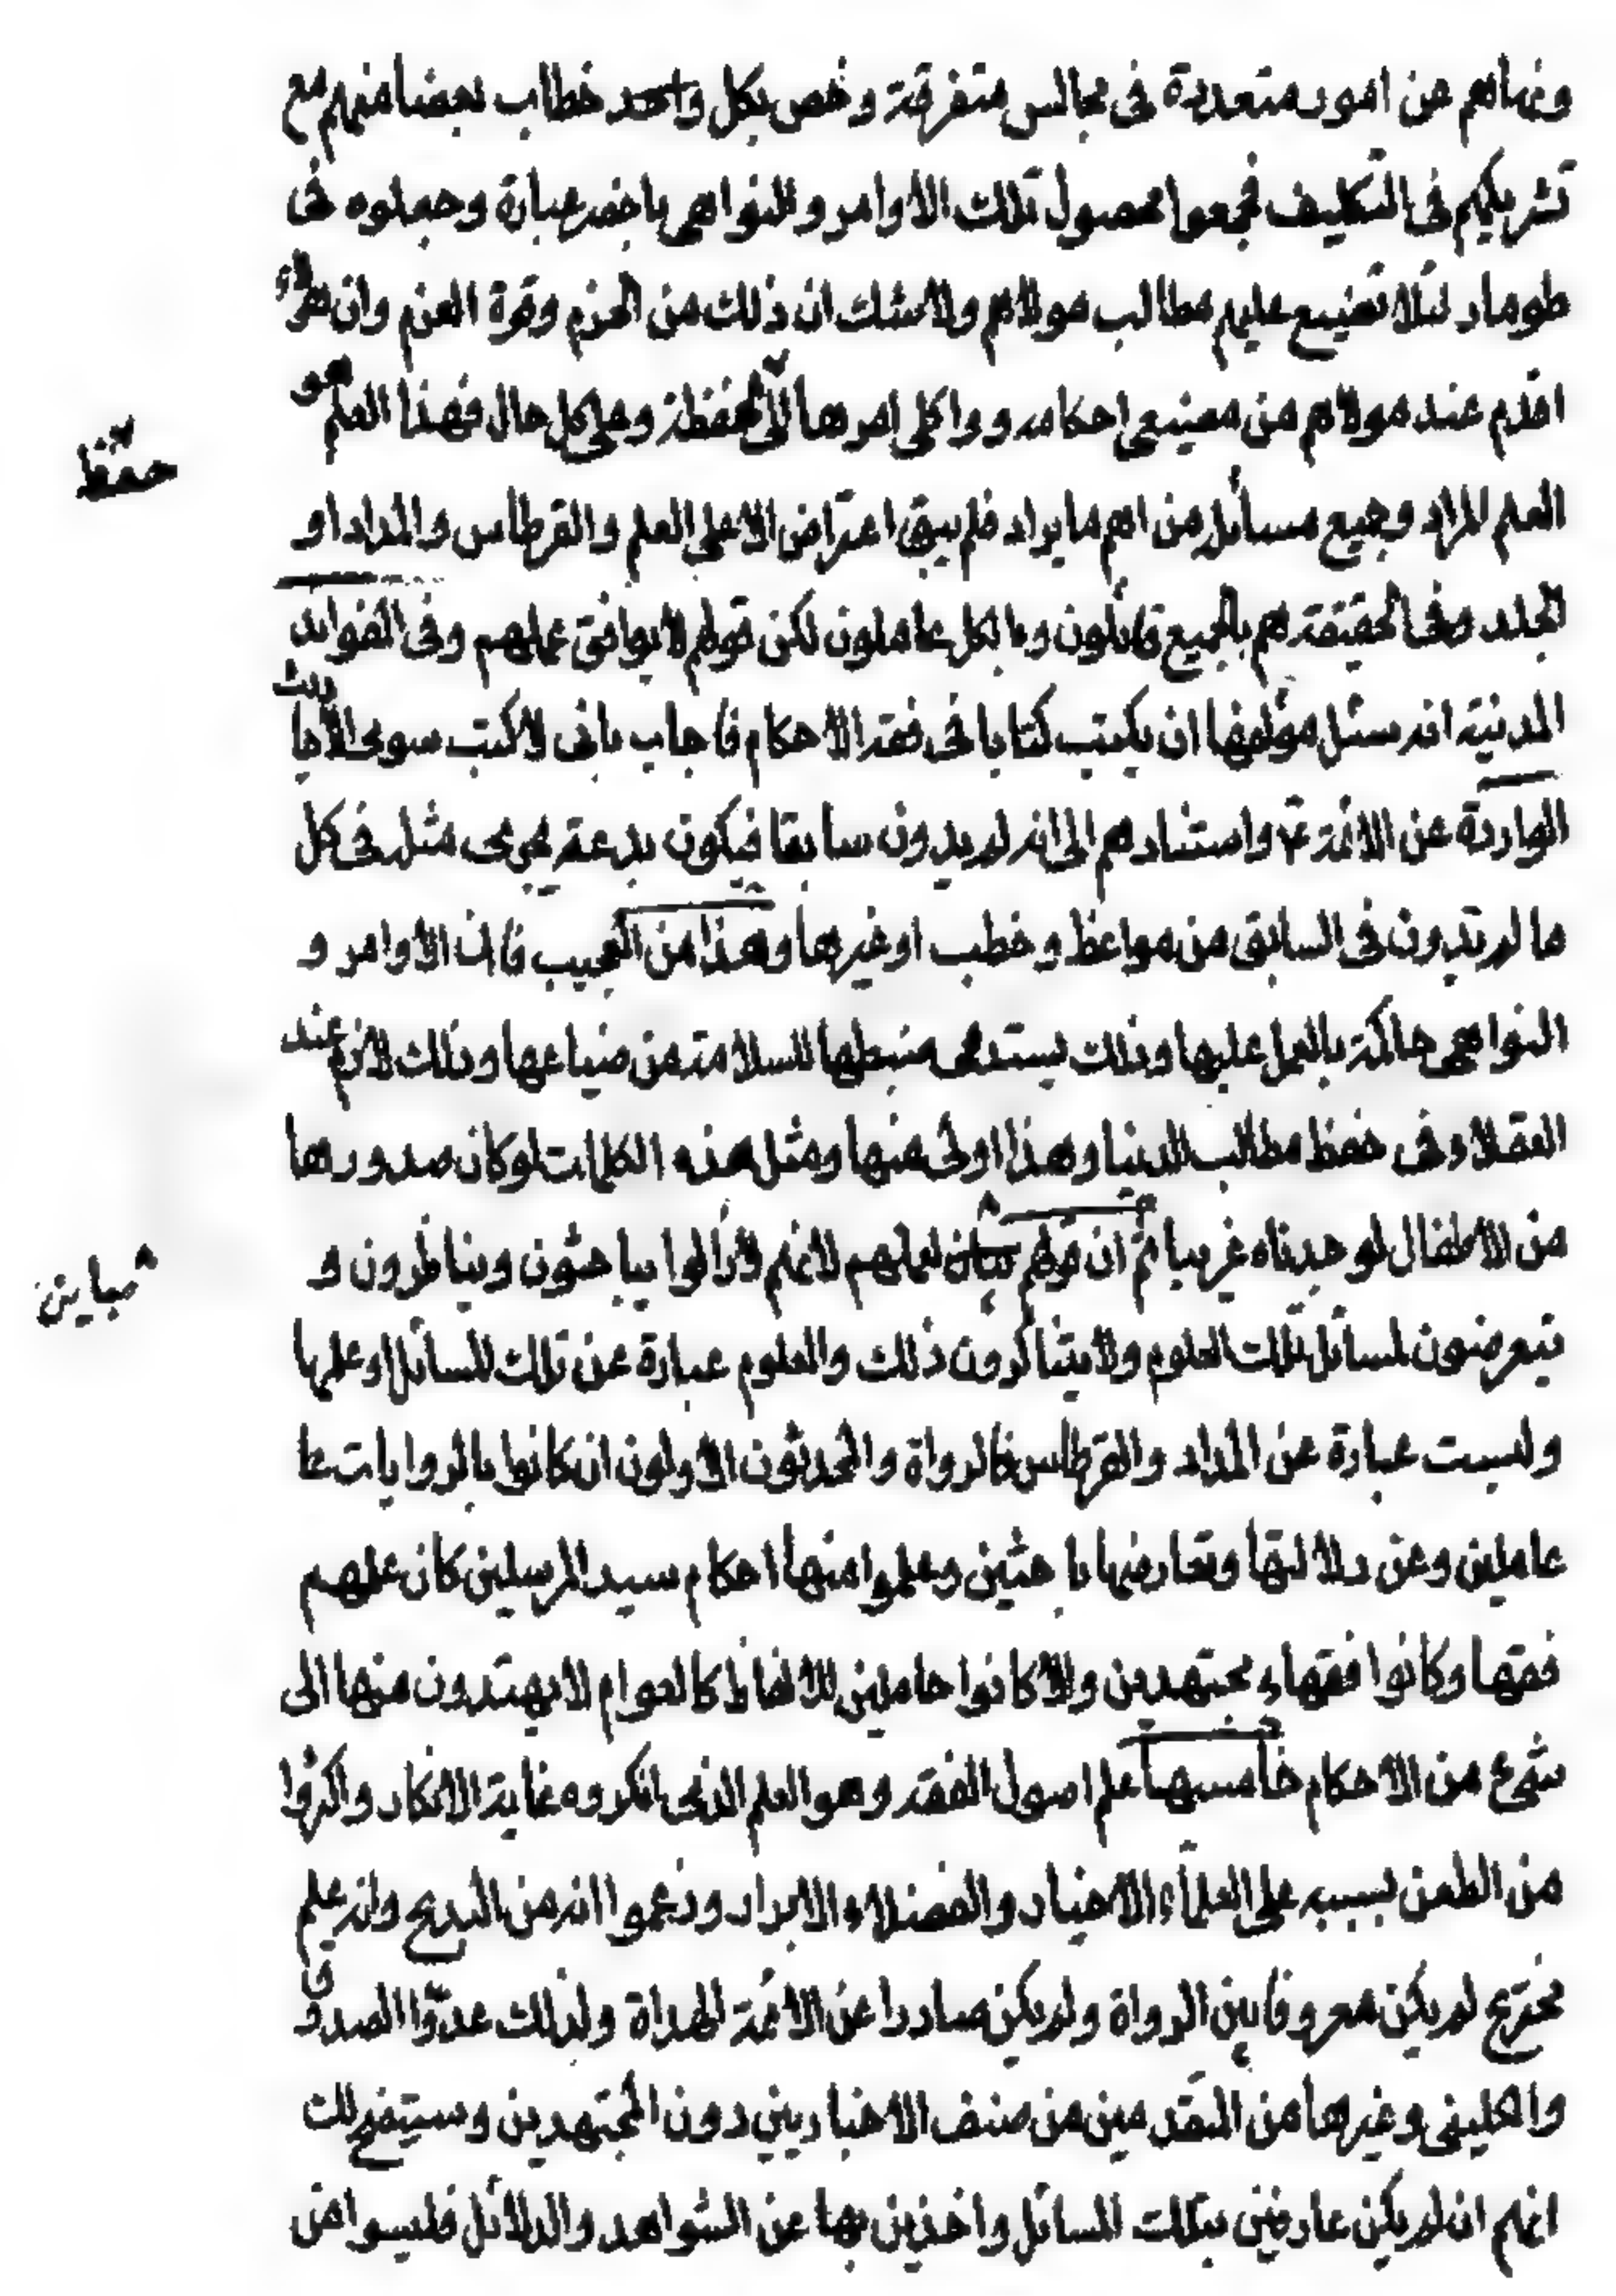 ونهاهم عن امور متعددة فى مجالس متفرقة وخص بكل واحد خطاب بعضا منهم مع
تشريكهم فى التكليف فجمعوا محصول تلك الاوامر والنواهى باخصر عبارة وجعلوه فى
طومار لئلا تضيع عليهم مطالب مولاهم ولا شك ان ذلك من الحزم وقوة العزم وان هؤلاء
اقدم عند مولاهم من مضيعى احكامه وواكلى امرها الى الحفظة وعلى كل حال فهذا العلم هو
حفظ
العلم المراد وجميع مسائله من اهم ما يراد فلم يبق اعتراض الا على العلم والقرطاس والمداد او
الجلد وفى الحقيقة هم بالجميع قائلون وبالكل عاملون لكن قولهم لا يوافق عملهم وفى الفوائد
المدنية انه سئل مؤلفها ان يكتب كتابا فى فقه الاحكام فاجاب بانى لا كتب سوى الاحاديث
الواردة عن الائمة ع واستنادهم الى انه لم يدون سابقا فيكون بدعة يجرى مثله فى كل
ما لم يتدون فى السابق من مواعظ وخطب او غيرها وهذا من العجيب فان الاوامر و
النواهى حاكمة بالعمل عليها وذلك يستدعى ضبطها للسلامة من ضياعها وذلك لازم عند
العقلاء فى حفظ مطالب الدنيا وهذا اولى منها ومثل هذه الكلمات لو كان صدورها
من الاطفال لوجدناه غريبا ثم ان قولهم مباين لعملهم لانهم لازالوا يباحثون ويناظرون و
مباين
يتعرضون لمسائل تلك العلوم ولا يتناكرون ذلك والعلوم عبارة عن تلك المسائل او علمها
وليست عبارة عن المداد والقرطاس فالرواة والمحدثون الاولون ان كانوا بالروايات عا
عاملين وعن دلالتها وتعارضها باحثين وعلموا منها احكام سيد المرسلين كان علمهم
فقها وكانوا فقهاء مجتهدين والا كانوا حاملين للالفاظ كالعوام لا يهتدون منها الى
شىء من الاحكام خامسها علم اصول الفقه وهو العلم الذى انكروه غاية الانكار واكثروا
من الطعن بسببه على العلماء الاخيار والفضلاء الابرار وزعموا انه من البدع وانه علم
مخترع لم يكن معروفا بين الرواة ولم يكن صادرا عن الائمة الهداة ولذلك عدوا الصدوق
والكلينى وغيرها من المتقدمين من صنف الاخباريين دون المجتهدين وسيتضح لك
انهم ان لم يكن عارفين بتلك المسائل واخذين بها عن الشواهد والدلائل فليسوا من